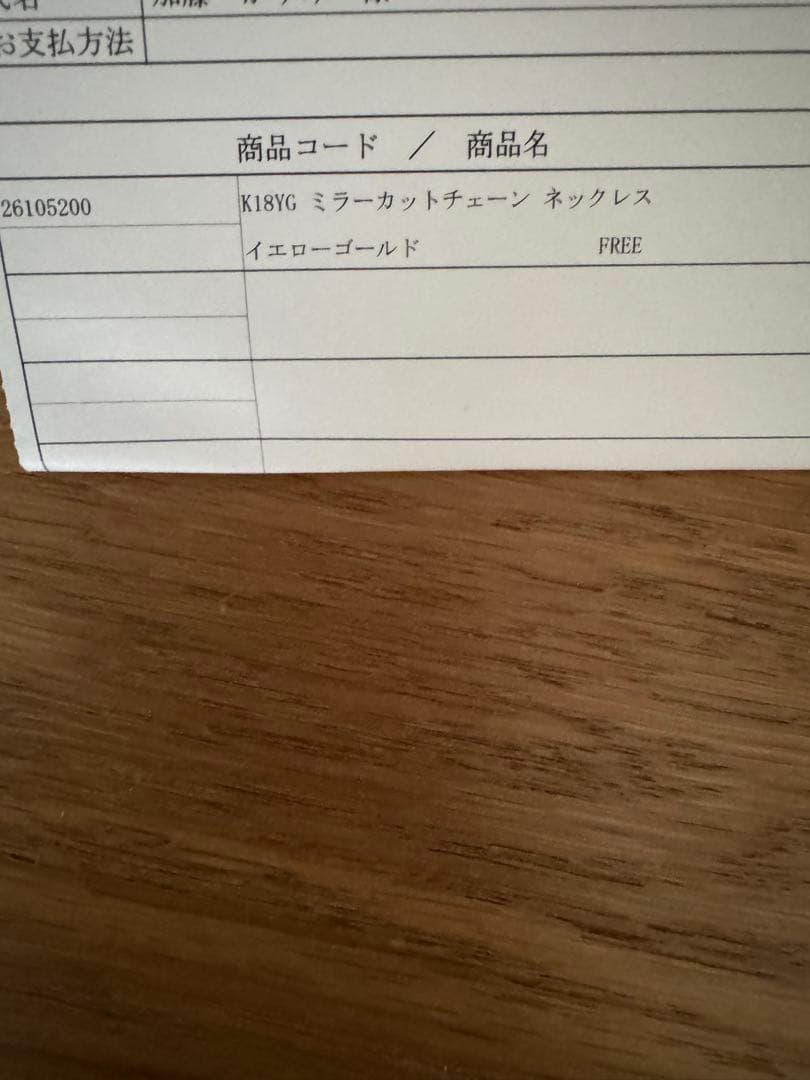 お支払方法
商品コード ／ 商品名
26105200 K18YG ミラーカットチェーン ネックレス
イエローゴールド FREE